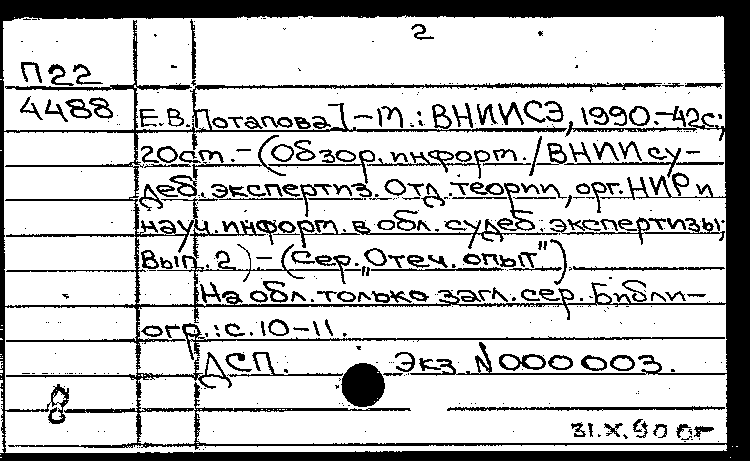 2
П22
4488
Е.В.Потапова]-М.: ВНИИСЭ, 1990.-42с;
20см.-(Обзор. информ./ВНИИ су-
деб. экспертиз. Отд. теории, орг. НИР и
науч. информ. в обл. судеб. экспертизы;
Вып. 2).-(Сер. „Отеч. опыт")
На обл. только загл. сер. Библи-
огр.: с. 10-11.
ДСП. Экз. N 000003.
31.X.90